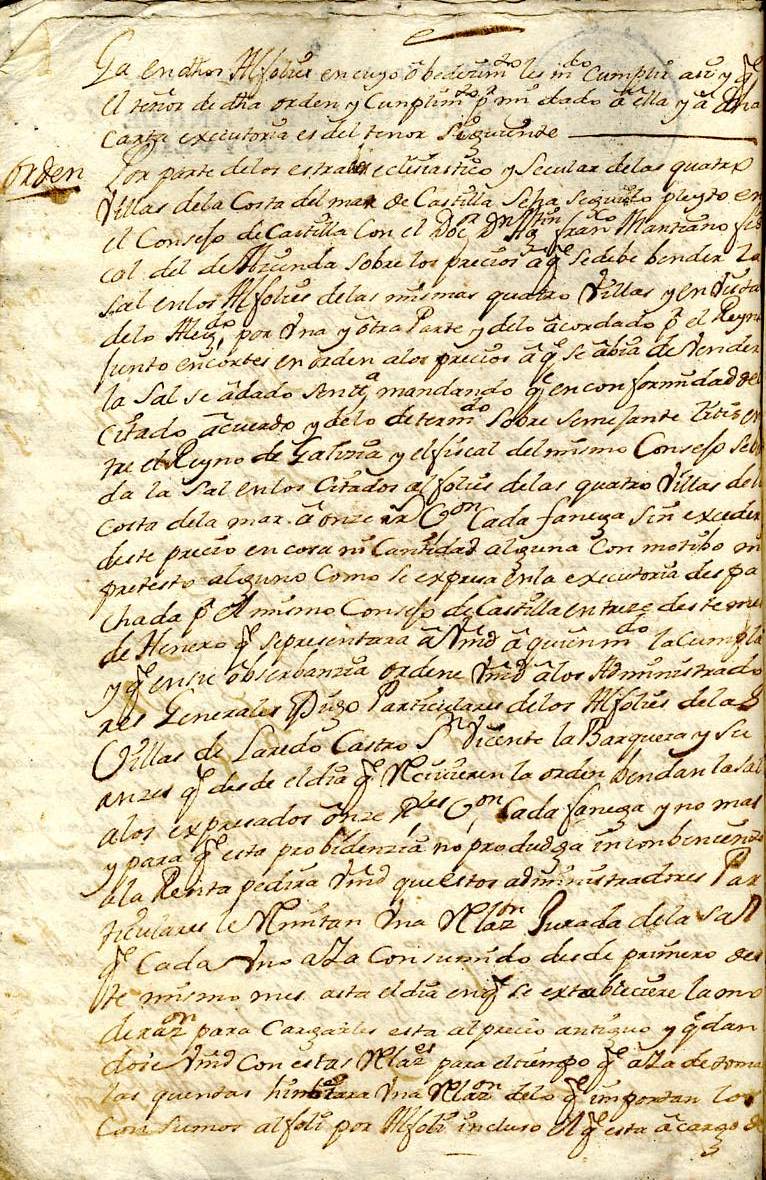 Ga en dhos Alfolies en cuyo obedecimto les mdo cumplir asi y qe
el tenor de dha orden y Cumplimto pr mi dado a ella y a dha
carta executoria es del tenor Siguiente
orden
Por parte de los estados eclesiastico y Secular de las quatro
Villas de la Costa del mar de Castilla Seha Seguido pleyto en
el Consejo de Castilla Con el Docr Dn Franco Manzano fis
cal del de Hazienda Sobre los precios a qe Se debe bender la
Sal en los Alfolies de las mismas quatro Villas y en Vista
de lo Alegdo por Una y otra Parte y de lo acordado pr el Reyno
Junto en cortes en orden a los precios a qe Se abia de Vender
la Sal se a dado Senta mandando qe en conformidad del
Citado acuerdo y de lo determdo Sobre Semejante litis en
tre el Reyno de Galizia y el fiscal del mismo Consejo Seben
da la Sal en los Citados alfolies de las quatro Villas de la
Costa de la mar a onze rs Von Cada fanega Sin exceder
deste precio en cosa ni Cantidad alguna Con motibo ni
pretesto alguno Como Se expresa en la executoria despa
chada pr el mismo Consejo de Castilla en treze deste mes
de Henero qe sepresentara a Vmd a quien mdo la Cumpla
y qe en su obserbanzia ordene Vmd a los Administrado
res Generales Digo Particulares de los Alfolies de las
Villas de Laredo Castro Sn Vicente la Barquera y Su
anzes qe desde el dia qe Recivieren la orden bendan la Sal
a los expresados onze Rles Von Cada fanega y no mas
y para qe esta probidenzia no produzga inconbeniente
a la Renta pedira Vmd que estos administradores Par
ticulares le Remitan Una Relazon Jurada de la Sal
qe Cada Uno aya Consumido desde primero des
te mismo mes asta el dia en qe se estableciere la mo
derazon para Cargarles esta al precio antiguo y qdan
dose Vmd Con estas Relazes para el tiempo qe aya de tomar
las quentas Una Relazon de lo qe importan los
Consumos alfoli por Alfoli incluso el qe esta a cargo de